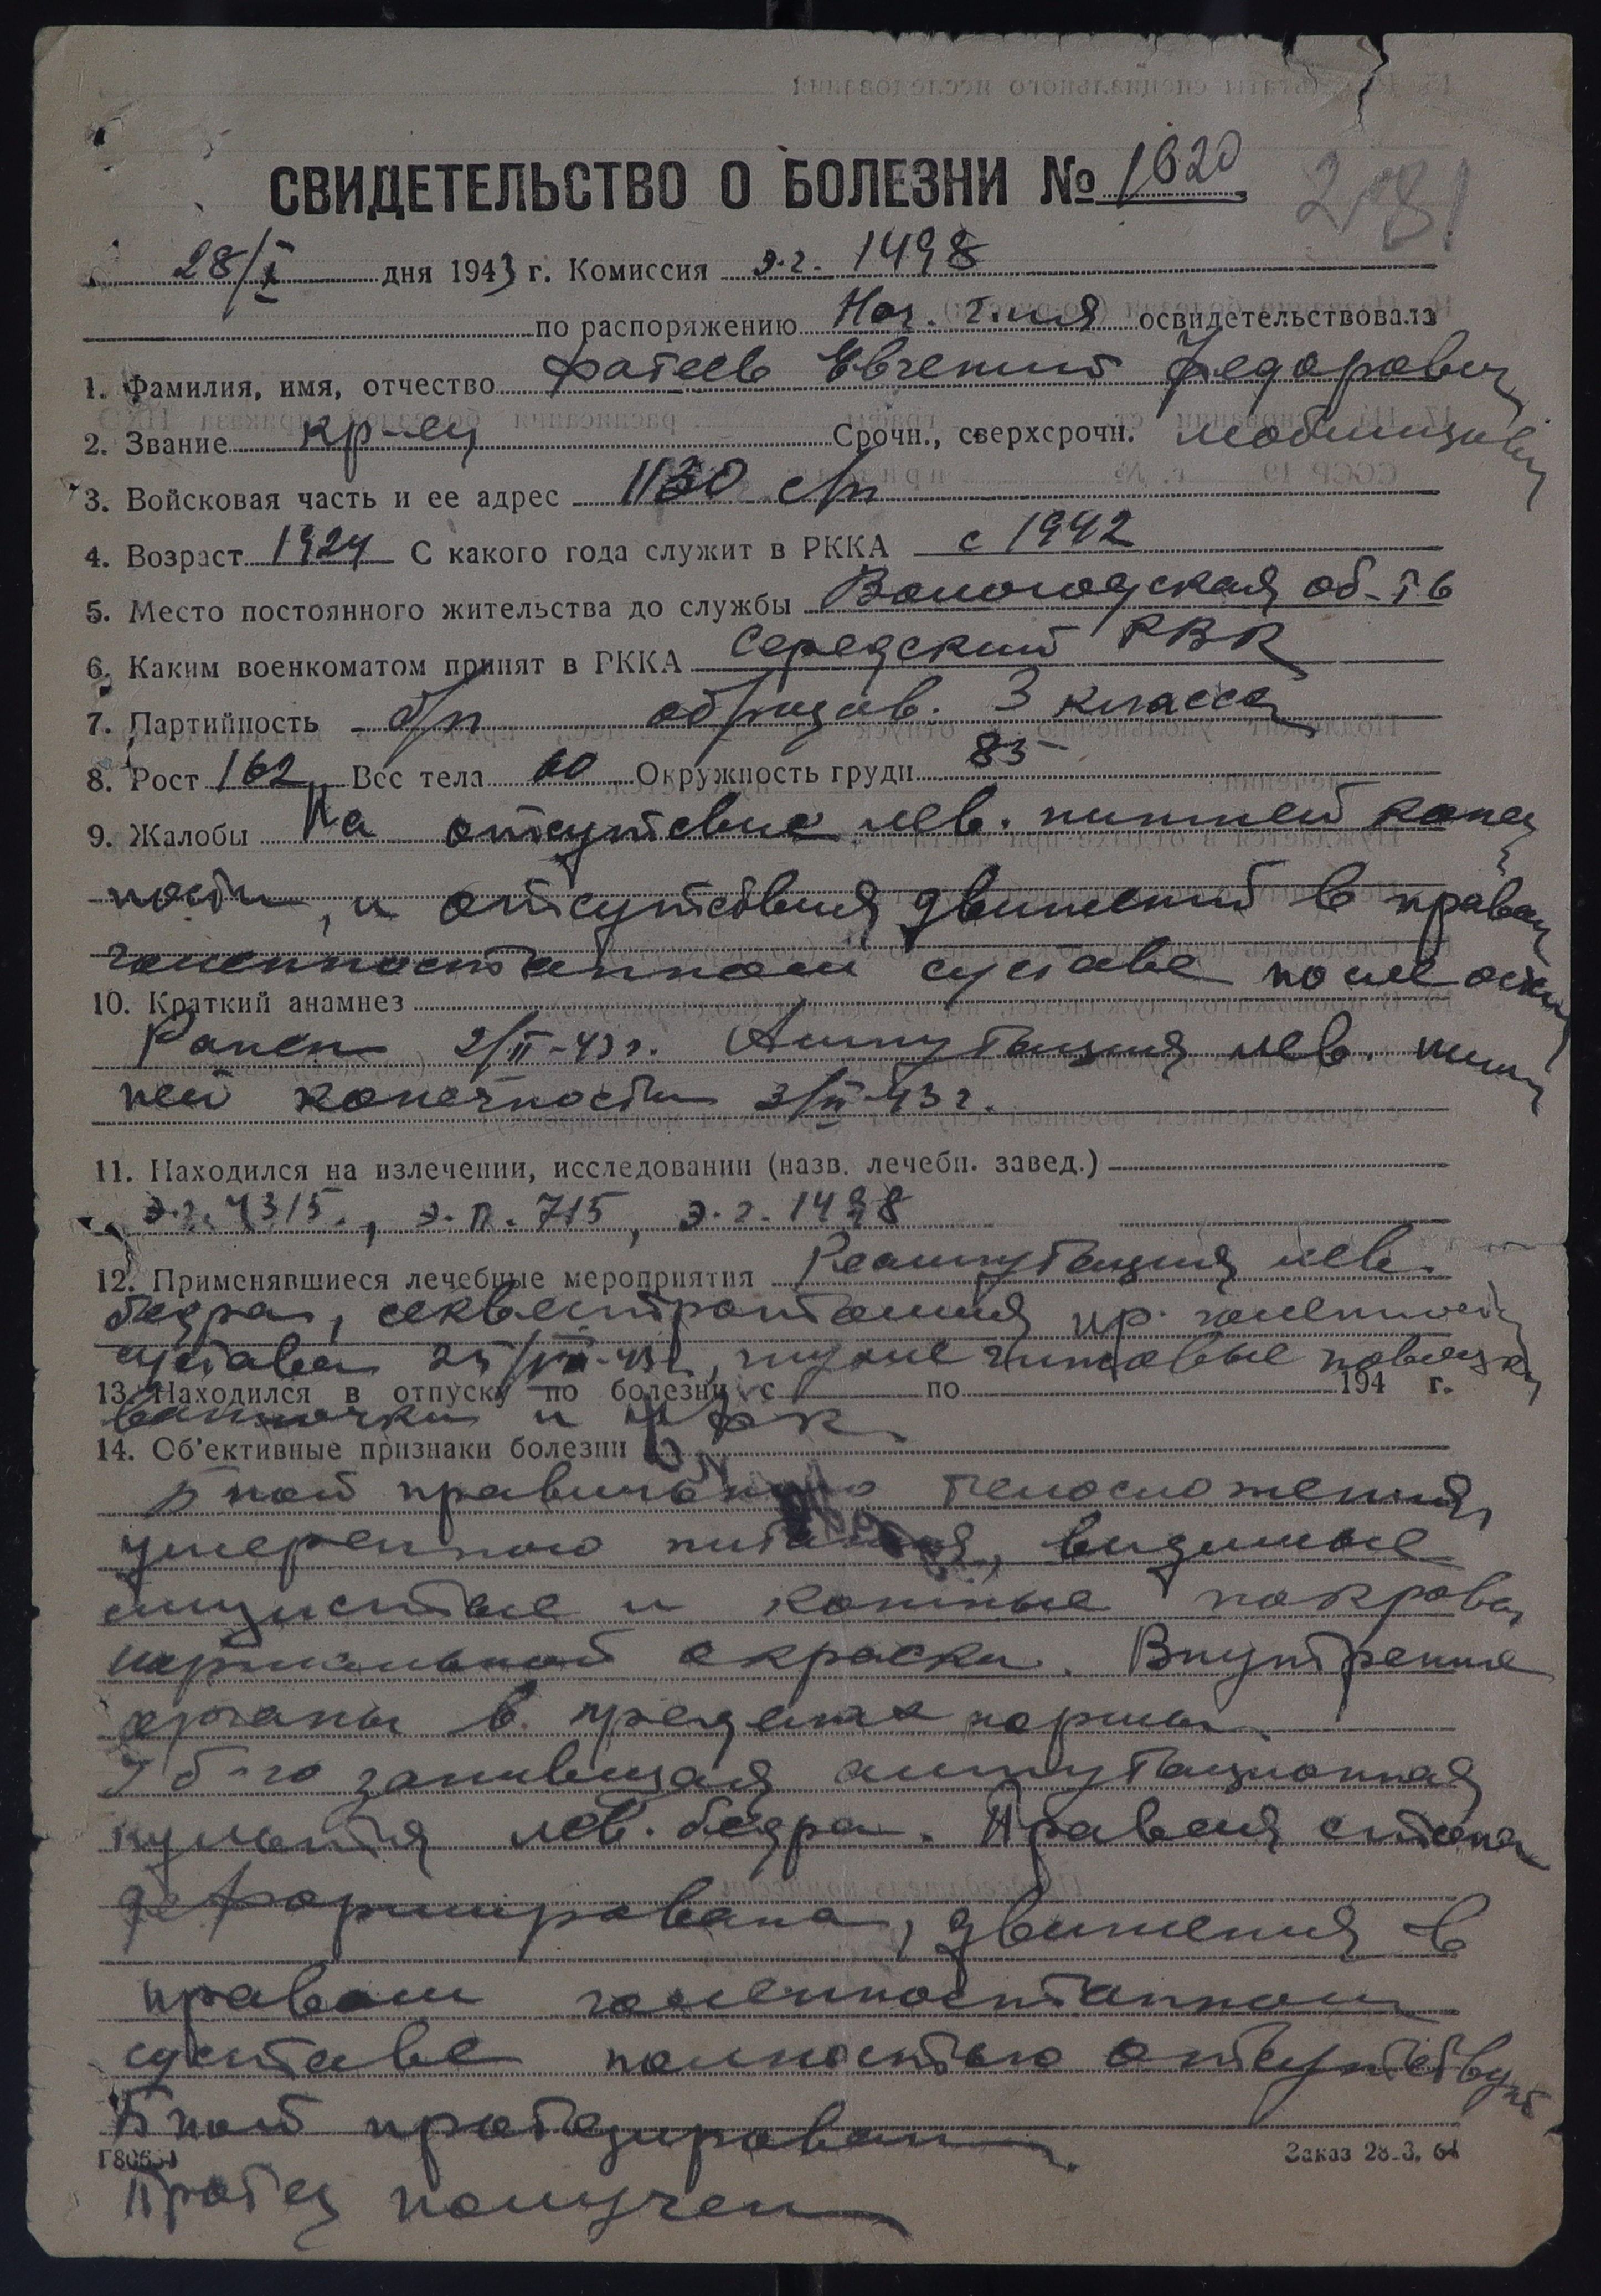 СВИДЕТЕЛЬСТВО О БОЛЕЗНИ № 1620 281
28/X дня 1943 г. Комиссия э.г. 1498
по распоряжению Нач. г-ля освидетельствовала
1. Фамилия, имя, отчество Фатеев Евгений Федорович
2. Звание кр-ец Срочн., сверхсрочн. мобилизов
3. Войсковая часть и ее адрес 1130 с/п
4. Возраст 1924 С какого года служит в РККА с 1942
5. Место постоянного жительства до службы Вологодская об-ть
6. Каким военкоматом принят в РККА Середский РВК
7. Партийность б/п образов. 3 класса
8. Рост 162 Вес тела 60 Окружность груди 85
9. Жалобы На отсутствие лев. нижней конеч
ности, и отсутствия движений в правом
голенностопном суставе после
10. Краткий анамнез
Ранен 2/II-43г. Ампутация лев. ниж
ней конечности 3/II-43г.
11. Находился на излечении, исследовании (назв. лечебн. завед.)
э.г. 4315, э.п. 715, э.г. 1498
12. Применявшиеся лечебные мероприятия Реампутация лев.
бедра, секвестротомия пр. голенност
сустава 25/VII-43г, глухие гипсовые повязки
13. Находился в отпуску по болезни с по 194 г.
ванночки и ЛФК
14. Об'ективные признаки болезни
Б-ной правильного телосложения,
умеренного питания, видимые
слизистые и кожные покровы
нормальной окраски. Внутренние
органы в пределах нормы.
У б-го зажившая ампутационная
культя лев. бедра. Правая стопа
деформирована, движения в
правом голенностопном
суставе полностью отсутствуют
Б-ной протезирован.
Г80654 Заказ 28.3. 64
Протез получен